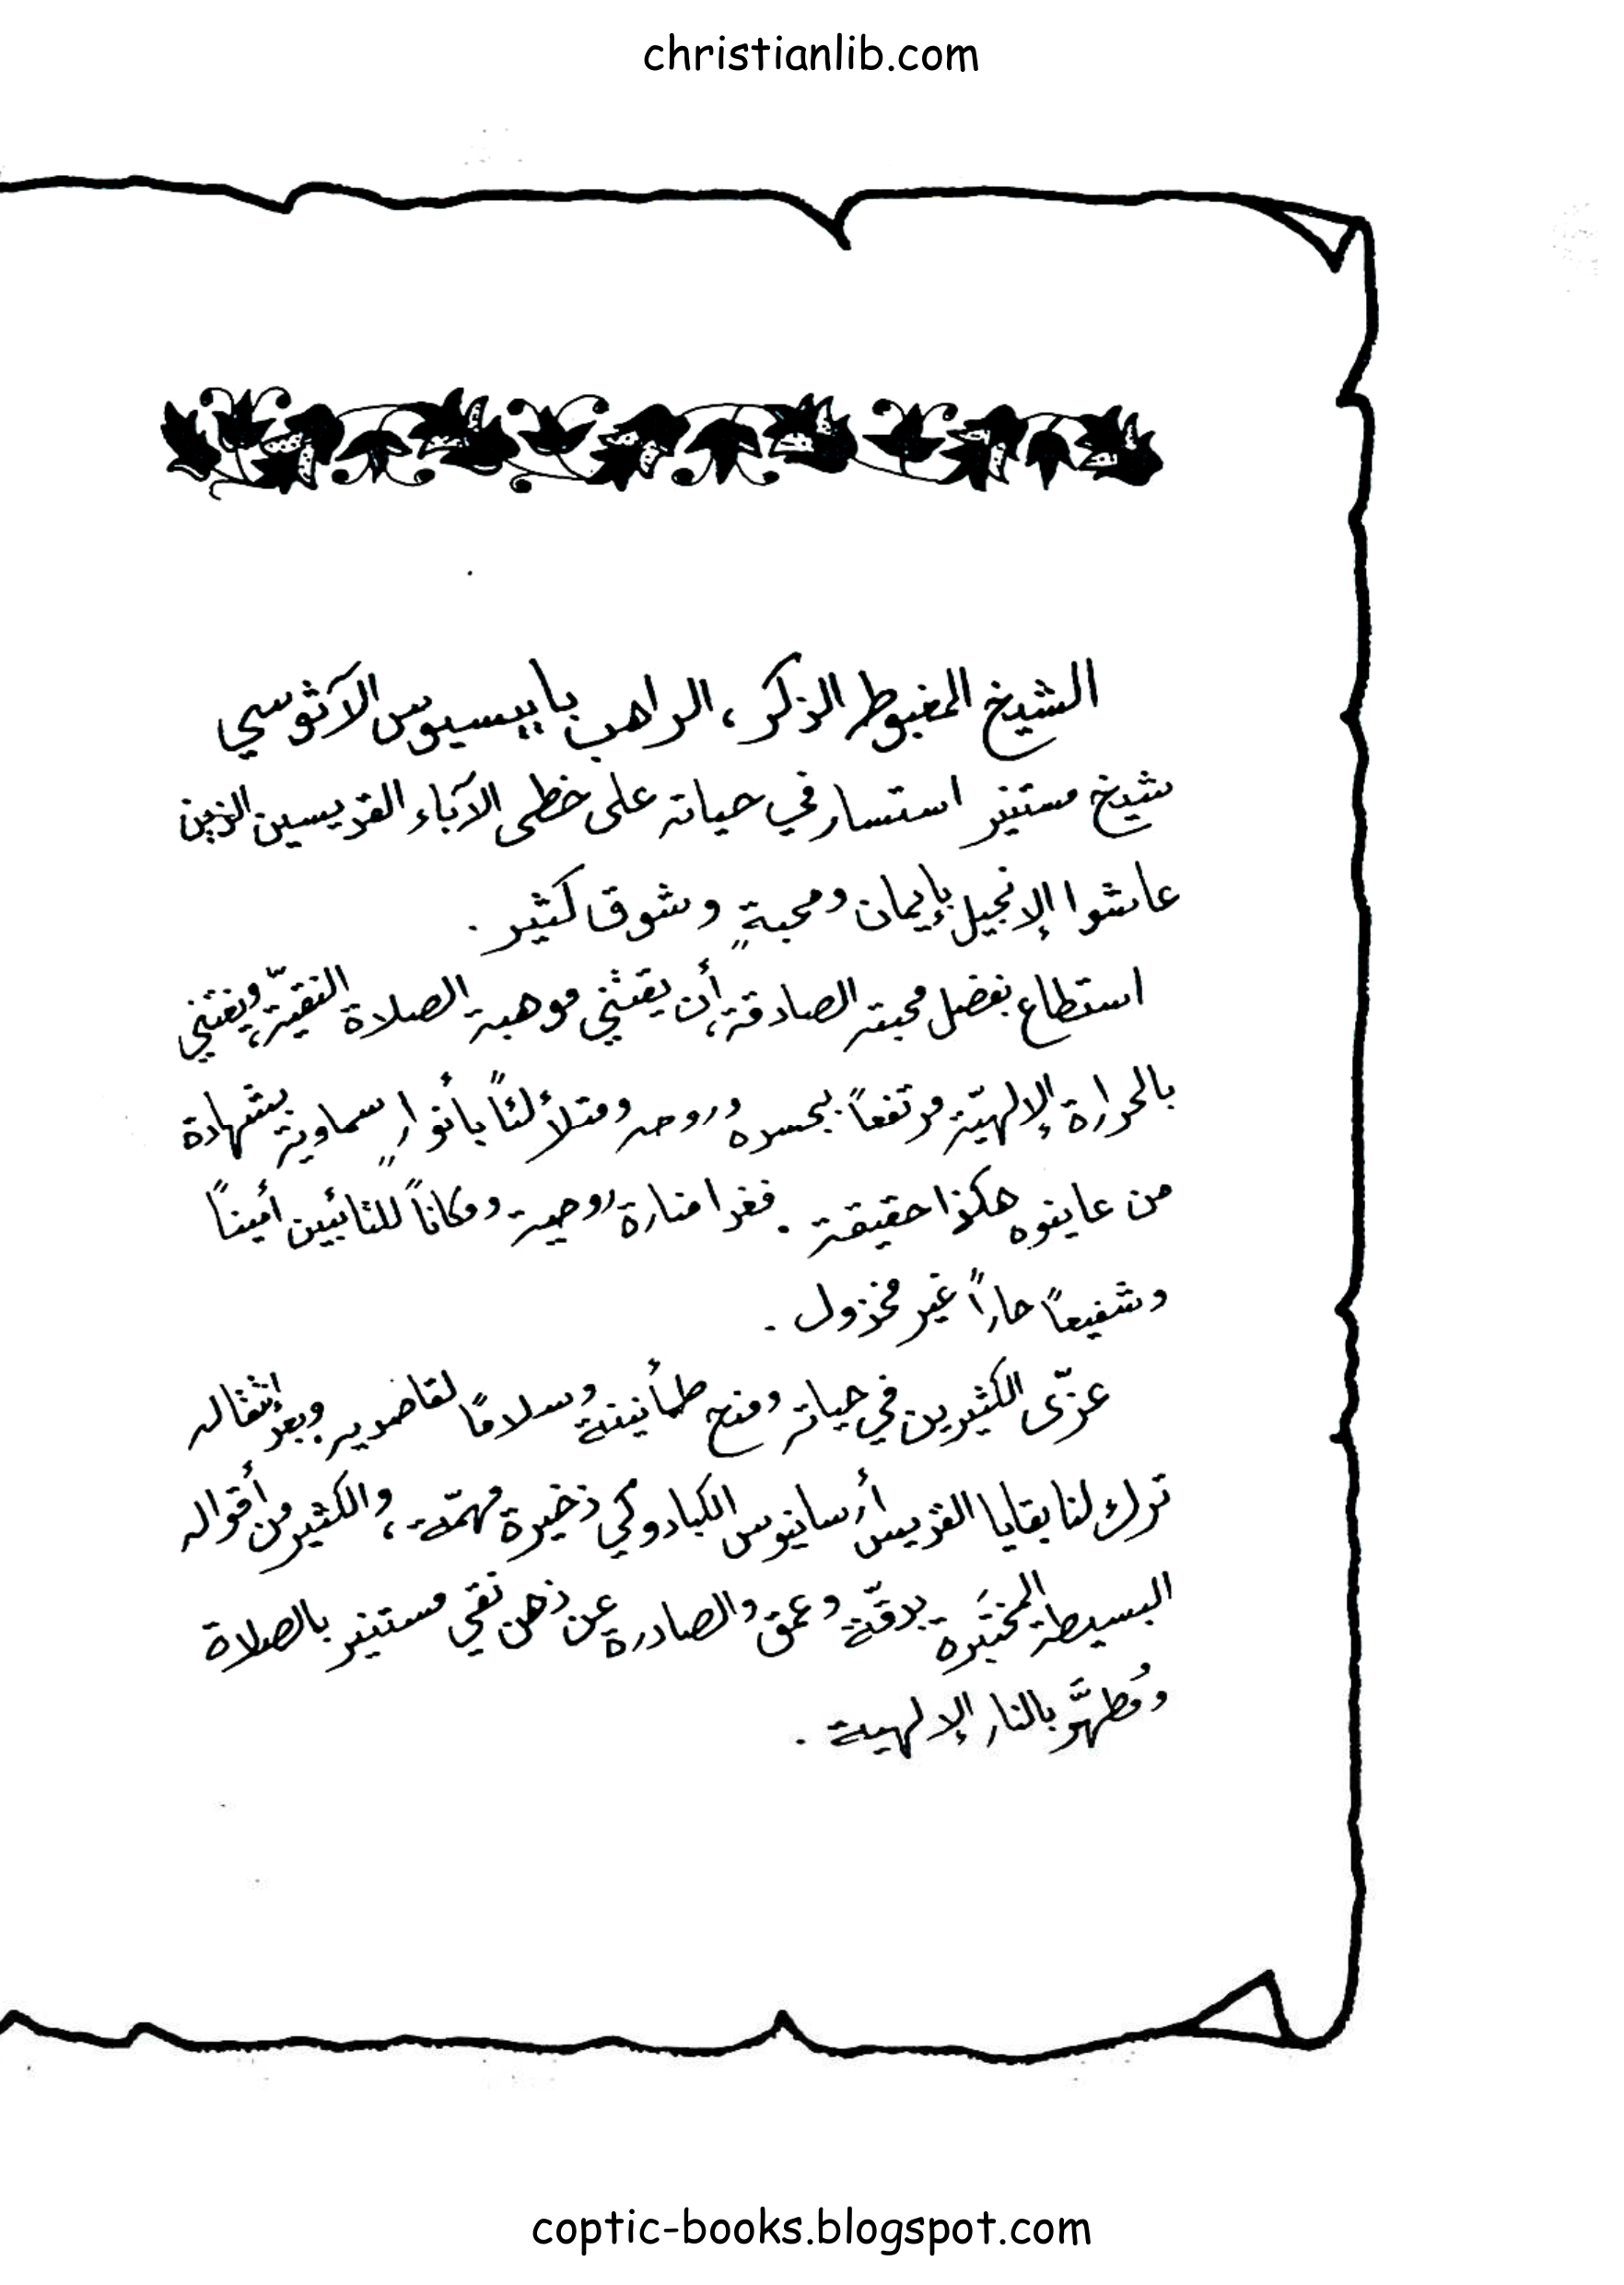 christianlib.com
الشيخ المغبوط الذكر، الراهب باييسيوس الآثوسي
شيخ مستنير استسار في حياته على خطى الآباء القديسين الذين
عاشوا الإنجيل بإيمان ومحبةٍ وشوق كثير.
استطاع بفضل محبته الصادقة، أن يقتني موهبة الصلاة النقيّة، ويغتني
بالحرارة الإلهيّة مرتفعاً بجسده وروحه ومتلألئاً بأنوارٍ سماوية بشهادة
من عاينوه هكذا حقيقة. فغدا منارة روحية ومكاناً للتائبين أميناً
وشفيعاً حاراً غير مخذول.
عزّى الكثيرين في حياته ومنح طمأنينة وسلامًا لقاصديه وبعد إنتقاله
ترك لنا بقايا القديس أرسانيوس الكبادوكي ذخيرة مهمّة، والكثير من أقواله
البسيطة المختبَرة بدقّة وعمق والصادرة عن ذهن نقي مستنير بالصلاة
ومُطهَّر بالنار الإلهية.
coptic-books.blogspot.com